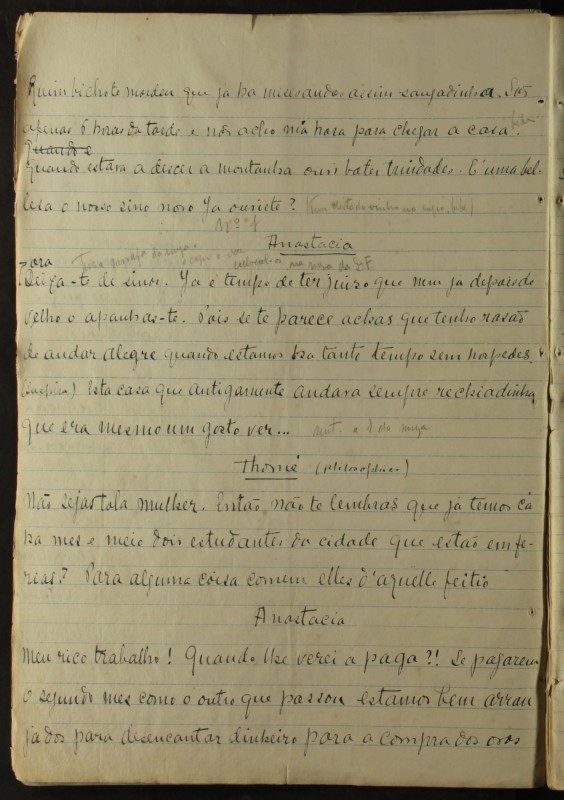 bichote mordeu que já ha meses andas assim zangadinha. São
apenas 6 horas da tarde e não acho má hora para chegar a casa.
Quando e
Quando estava a descer a montanha ouvi bater trindades. É uma bel-
leza o nosso sino novo. Ya ouviste?
Anastacia
ora
Deixa-te de sinos. Ya é tempo de ter juizo que nem ja depois de
velho o apanhas-te. Pois se te parece achas que tenho rasão
de andar alegre quando estamos ha tanto tempo sem hospedes.
(suspira) Esta casa que antigamente andava sempre rechiadinha
que era mesmo um gosto ver...
Thomé (philosophico)
Não sejas tola mulher. Então, não te lembras que já temos cá
ha mes e meio dois estudantes da cidade que estão em fe-
rias? Para alguma coisa comem elles d'aquelle feitio
Anastacia
Meu rico trabalho! Quando lhe verei a paga?! Se pagarem
o segundo mes como o outro que passou estamos bem arran
jados para desencantar dinheiro para a compra dos ovos